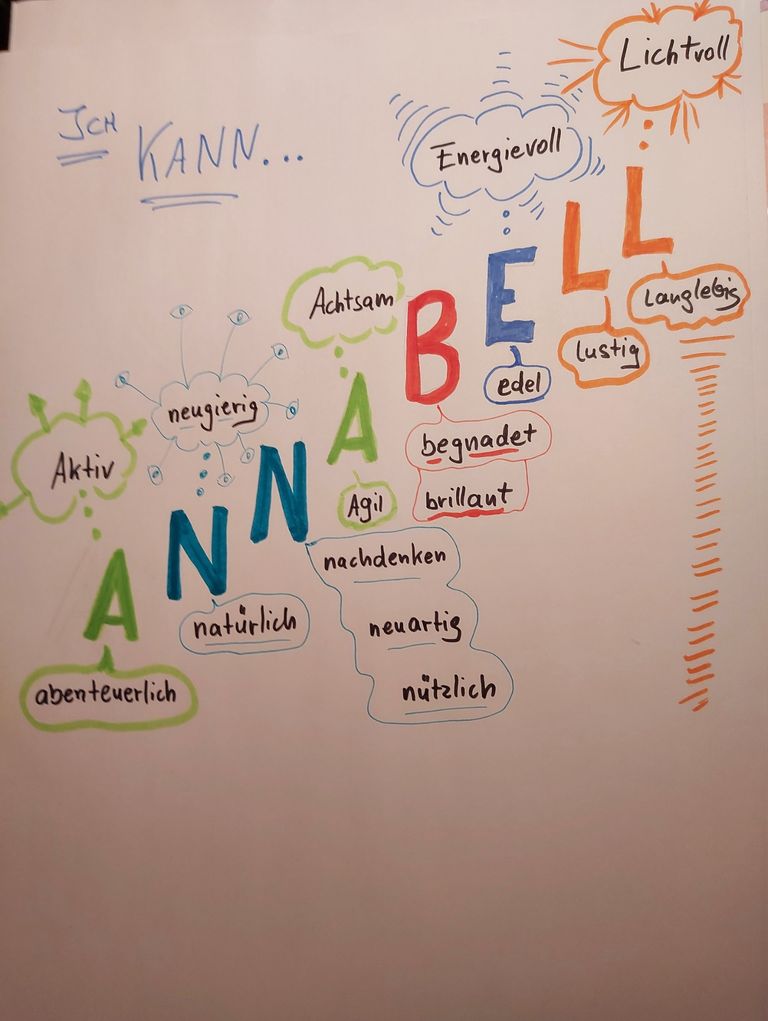 Ich
KANN...
Lichtvoll
Energievoll
Achtsam
neugierig
Aktiv
ANNABELL
abenteuerlich
natürlich
nachdenken
neuartig
nützlich
Agil
begnadet
brillant
edel
lustig
Langlebig